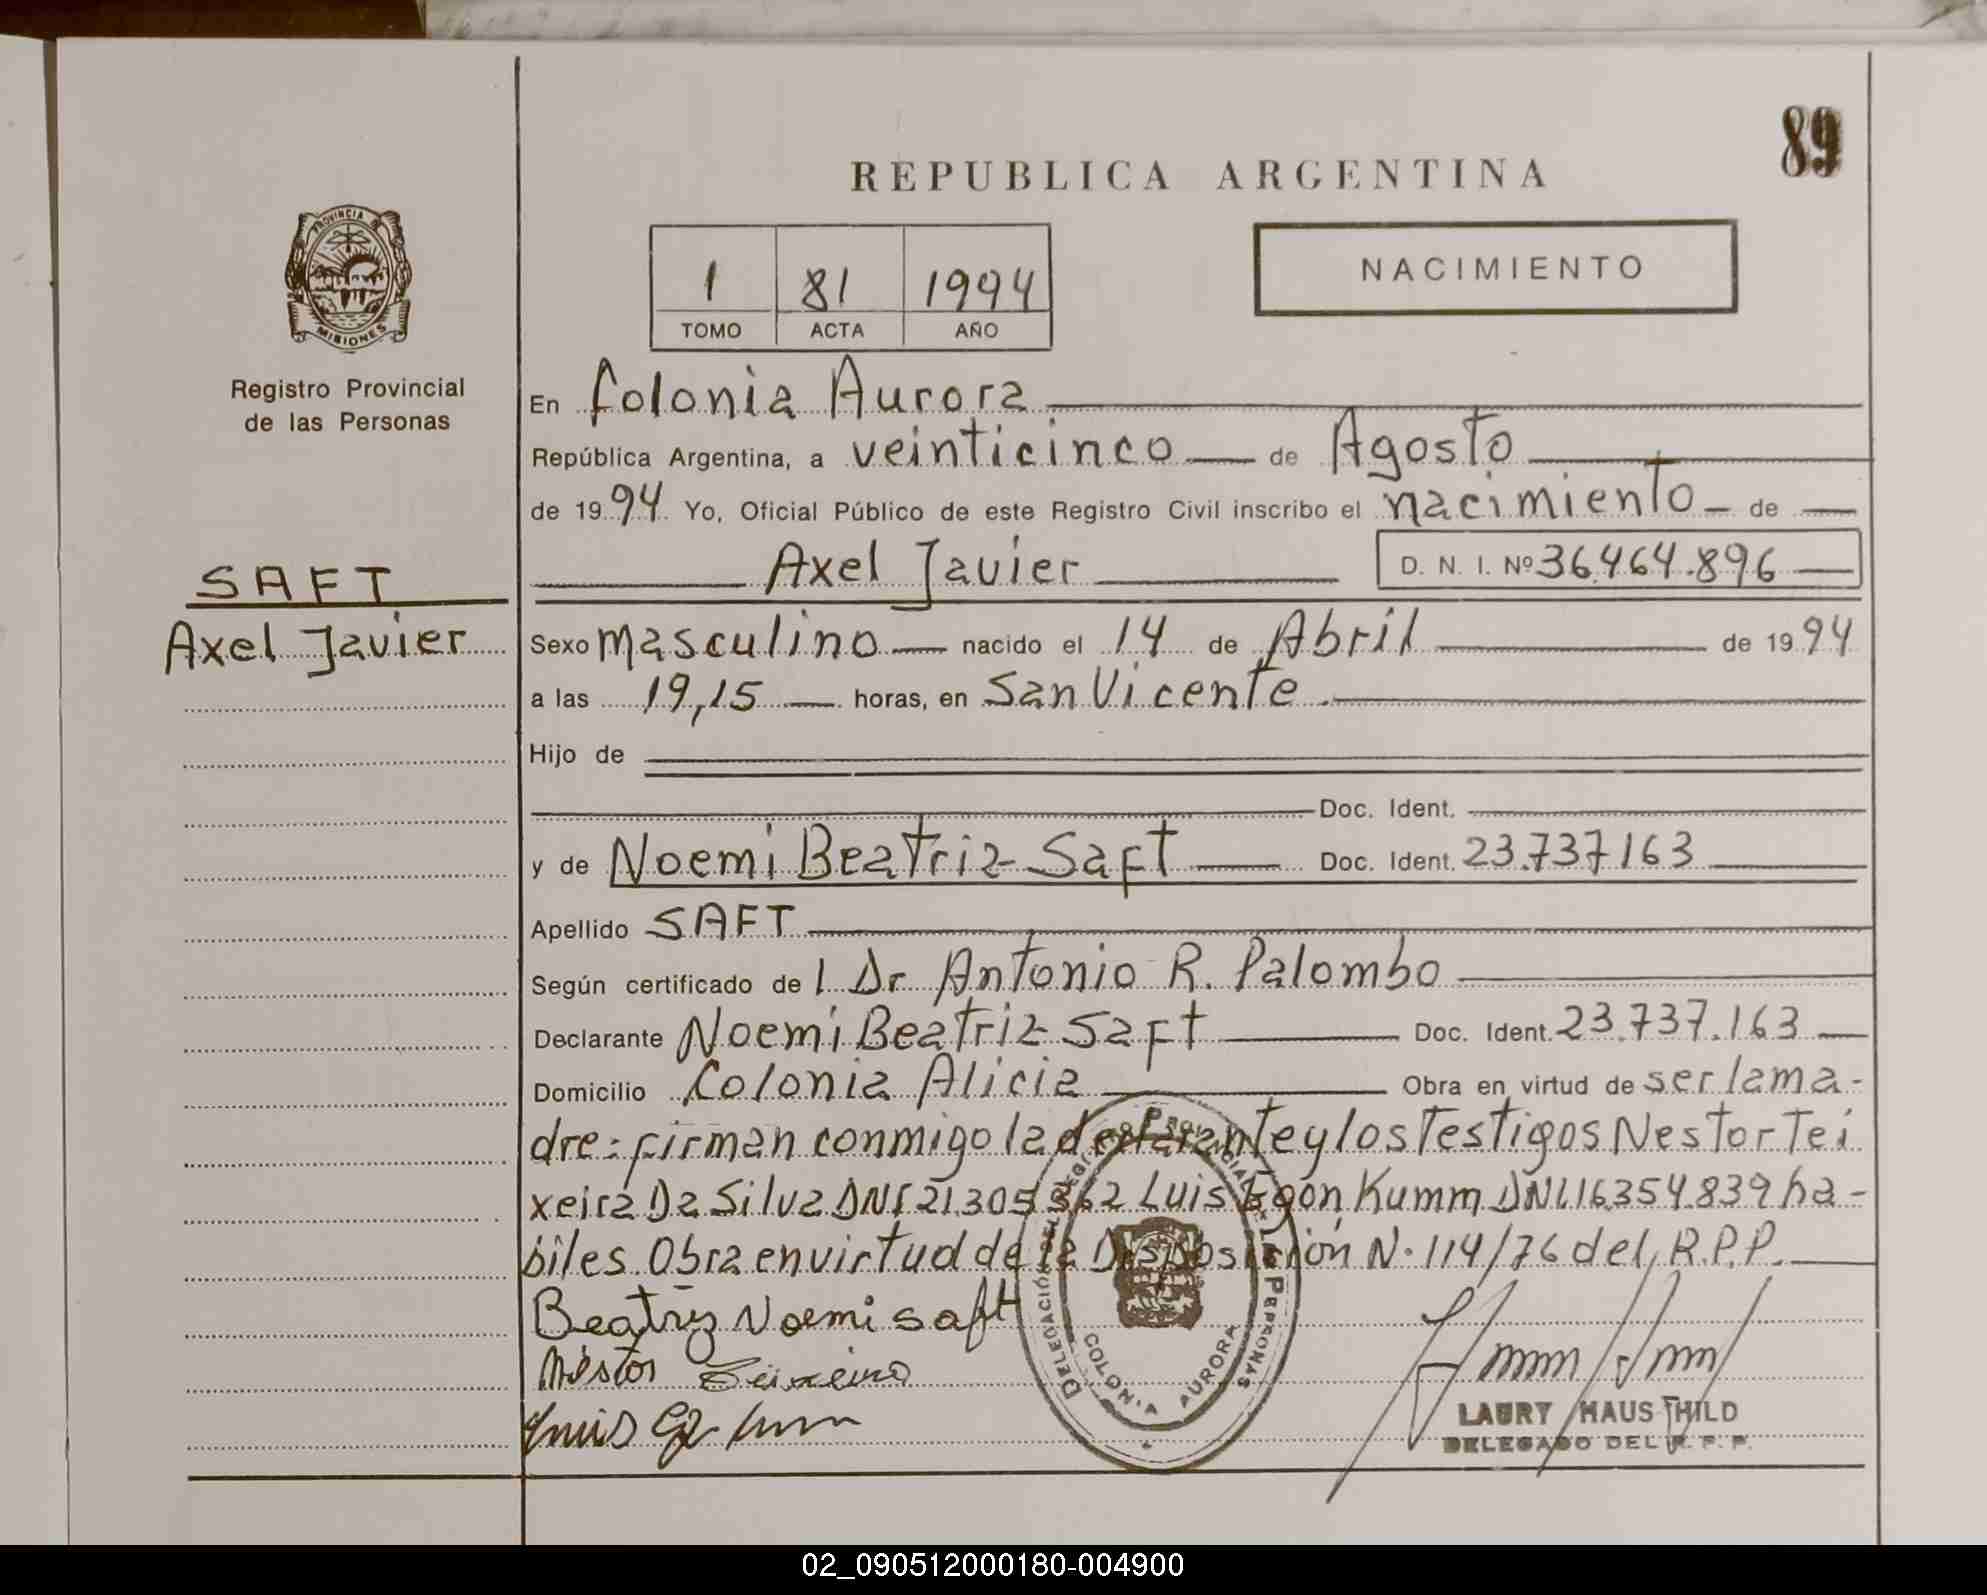 89
REPUBLICA ARGENTINA
PROVINCIA
MISIONES
Registro Provincial
de las Personas
1 81 1994
TOMO ACTA AÑO
NACIMIENTO
En Colonia Aurora
República Argentina, a veinticinco de Agosto
de 1994 Yo, Oficial Público de este Registro Civil inscribo el nacimiento de
Axel Javier D. N. I. Nº 36.464.896
SAFT
Axel Javier
Sexo masculino nacido el 14 de Abril de 1994
a las 19,15 horas, en San Vicente.
Hijo de
Doc. Ident.
y de Noemi Beatriz Saft Doc. Ident. 23.737163
Apellido SAFT
Según certificado de l Dr Antonio R. Palombo
Declarante Noemi Beatriz Saft Doc. Ident. 23.737.163
Domicilio Colonia Alicia Obra en virtud de ser la ma-
dre: firman conmigo la declarante y los Testigos Nestor Tei
xeira Da Silva DNI 21305362 Luis Egon Kumm DNI 16.354.839 ha-
biles. Obra en virtud de la Disposición N. 114/76 del R.P.P.
Beatriz Noemi Saft
Néstor Teixeira
Luis
DELEGACIÓN DEL REGISTRO PROVINCIAL DE LAS PERSONAS
COLONIA AURORA
LAURY HAUSTHILD
DELEGADO DEL R. P. P.
02_090512000180-004900